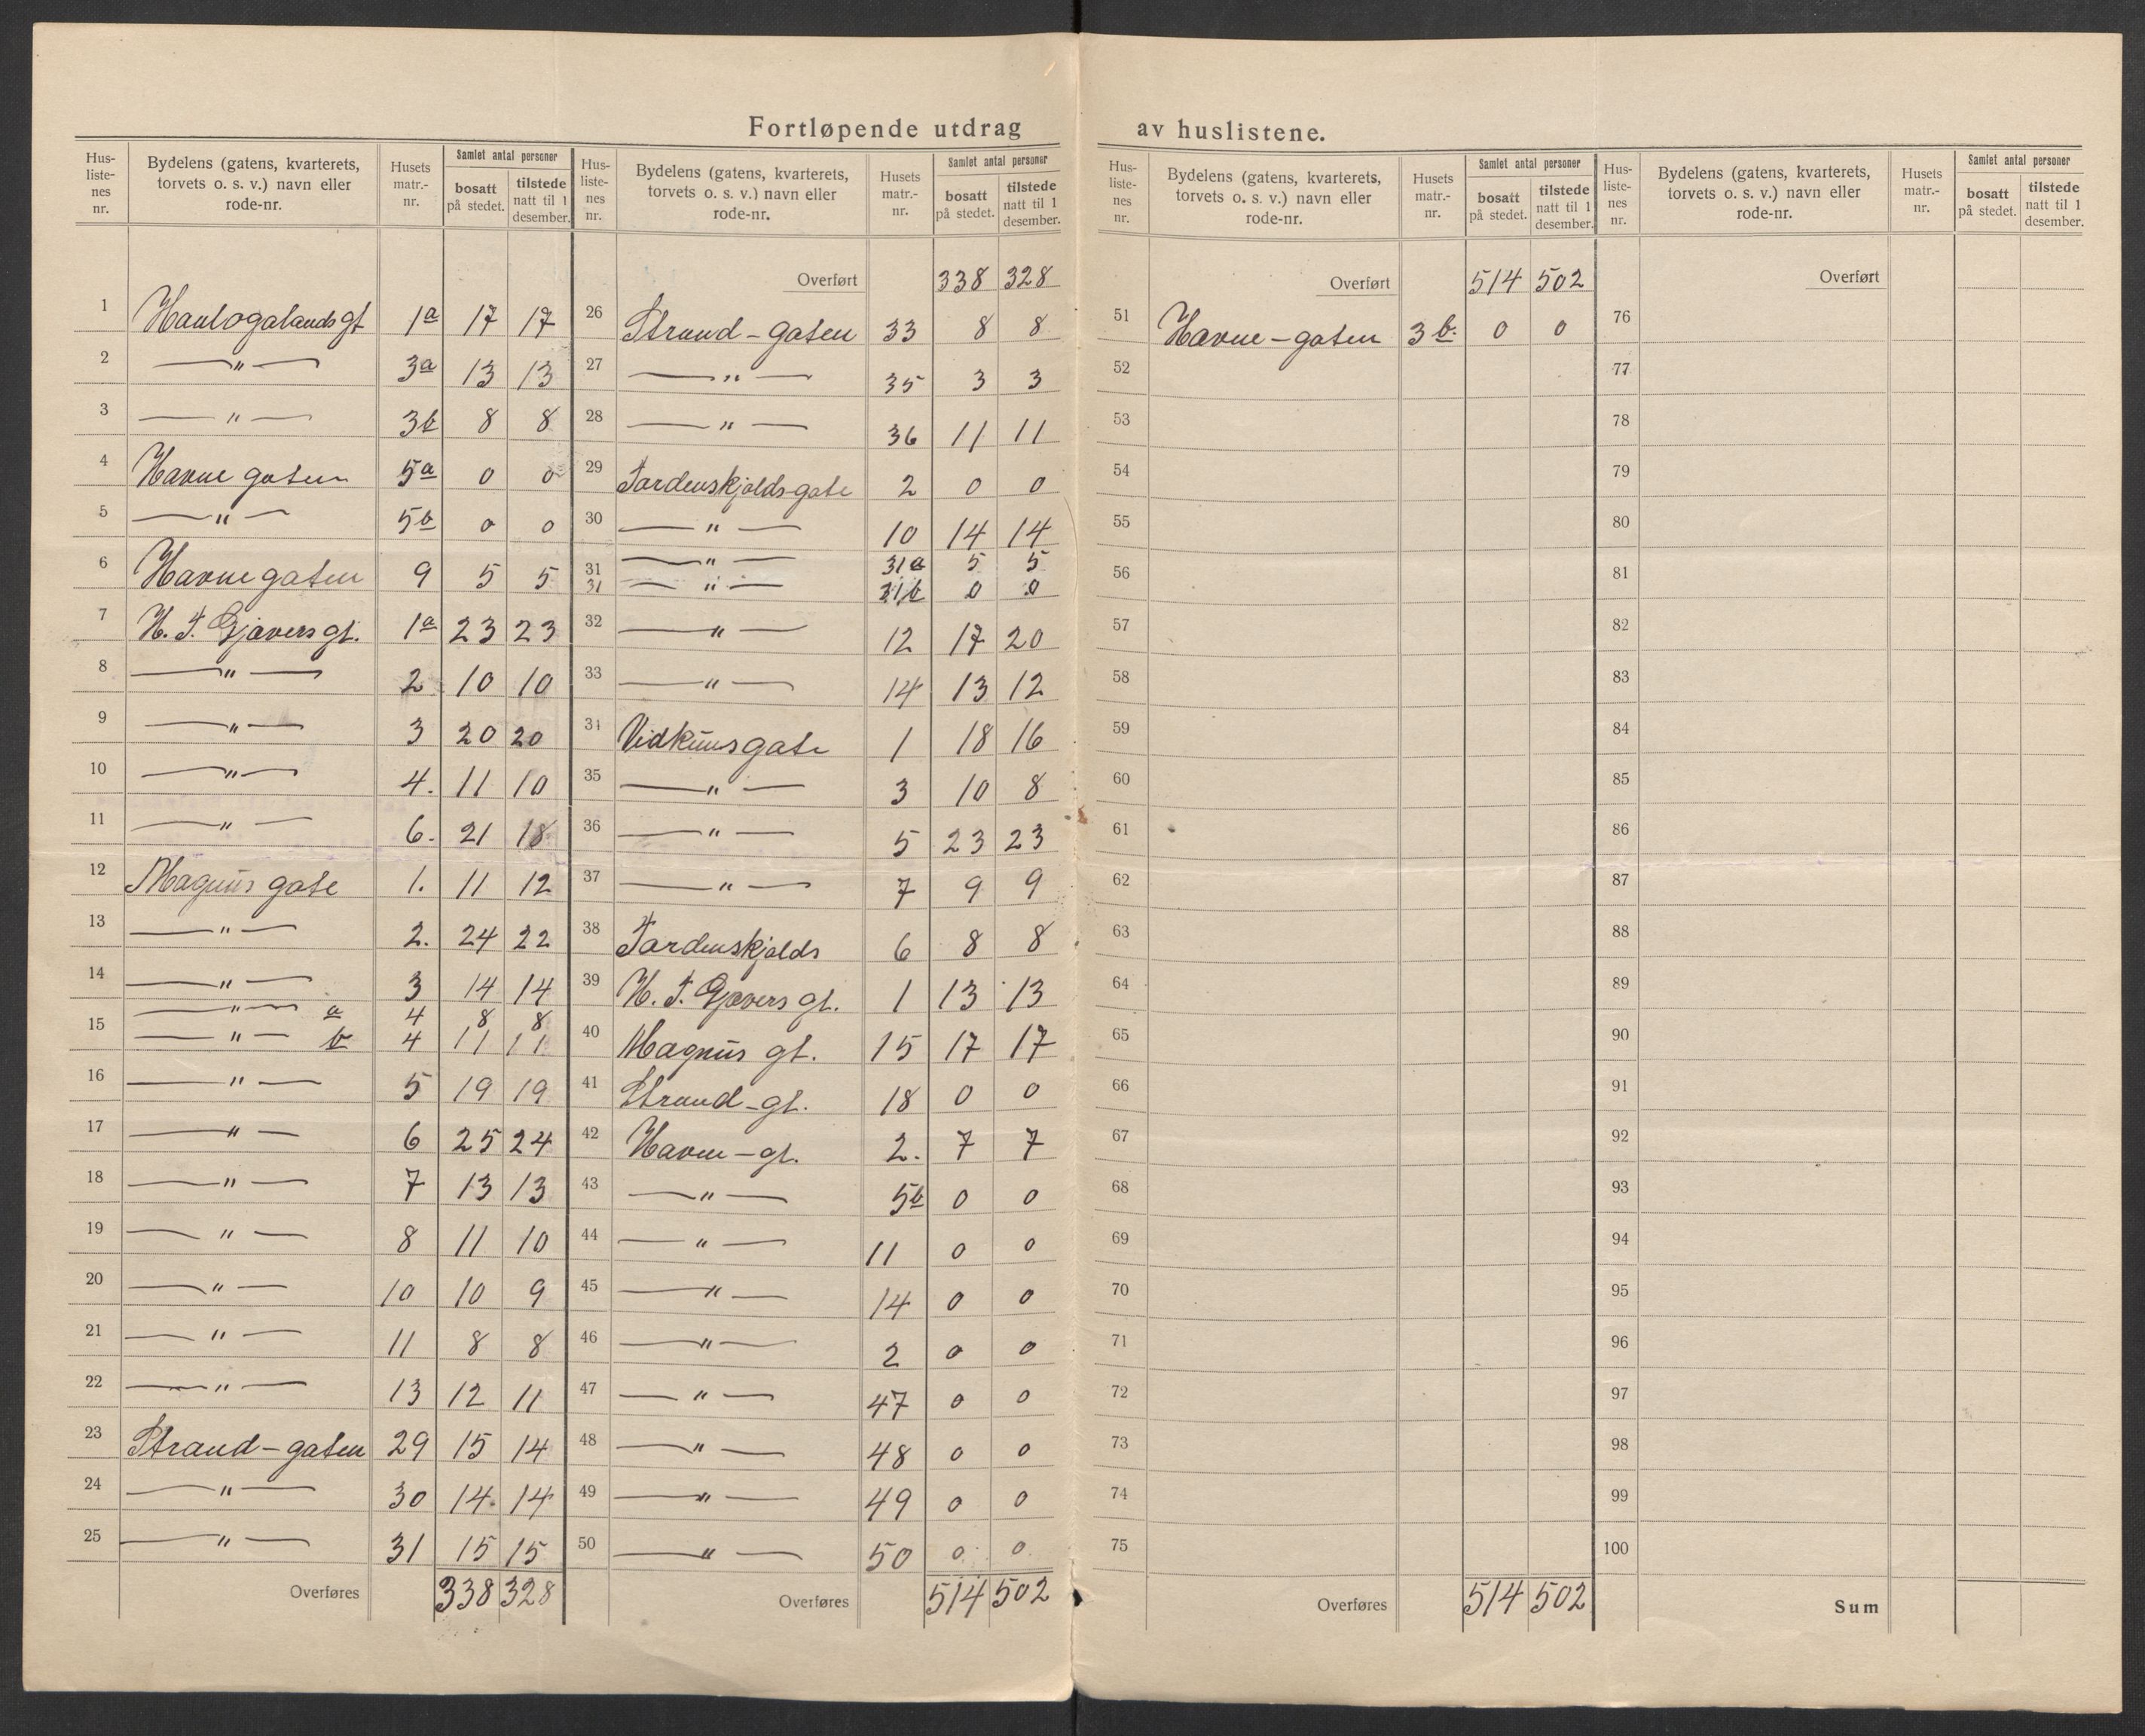 Fortløpende utdrag av huslistene.
Hus-listenes nr. | Bydelens (gatens, kvarterets, torvets o. s. v.) navn eller rode-nr. | Husets matr.-nr. | Samlet antal personer | bosatt på stedet. | tilstede natt til 1 desember.
1 Haalogalandsgt 1a 17 17
2 —"— 3a 13 13
3 —"— 3b 8 8
4 Havne gaten 5a 0 0
5 —"— 5b 0 0
6 Havnegaten 9 5 5
7 H. T. Gjævers gt. 1a 23 23
8 —"— 2 10 10
9 —"— 3 20 20
10 —"— 4. 11 10
11 —"— 6. 21 18
12 Magnus gate 1. 11 12
13 —"— 2. 24 22
14 —"— 3 14 14
15 —"— a 4 8 8
—"— b 4 11 11
16 —"— 5 19 19
17 —"— 6 25 24
18 —"— 7 13 13
19 —"— 8 11 10
20 —"— 10 10 9
21 —"— 11 8 8
22 —"— 13 12 11
23 Strand-gaten 29 15 14
24 —"— 30 14. 14
25 —"— 31 15 15
Overføres 338 328
Hus-listenes nr. | Bydelens (gatens, kvarterets, torvets o. s. v.) navn eller rode-nr. | Husets matr.-nr. | Samlet antal personer | bosatt på stedet. | tilstede natt til 1 desember.
Overført 338 328
26 Strand-gaten 33 8 8
27 —"— 35 3 3
28 —"— 36 11 11
29 Tordenskjolds-gate 2 0 0
30 —"— 10 14 14
31 —"— 31a 5 5
31 —"— 31b 0 0
32 —"— 12 17 20
33 —"— 14 13 12
34 Vidkuns gate 1 18 16
35 —"— 3 10 8
36 —"— 5 23 23
37 —"— 7 9 9
38 Tordenskjolds 6 8 8
39 H. T. Gjævers gt. 1 13 13
40 Magnus gt. 15 17 17
41 Strand-gt. 18 0 0
42 Havne-gt. 2. 7 7
43 —"— 5b 0 0
44 —"— 11 0 0
45 —"— 14 0 0
46 —"— 2 0 0
47 —"— 47 0 0
48 —"— 48 0 0
49 —"— 49 0 0
50 —"— 50 0 0
Overføres 514 502
Hus-listenes nr. | Bydelens (gatens, kvarterets, torvets o. s. v.) navn eller rode-nr. | Husets matr.-nr. | Samlet antal personer | bosatt på stedet. | tilstede natt til 1 desember.
Overført 514 502
51 Havne-gaten 3b. 0 0
52
53
54
55
56
57
58
59
60
61
62
63
64
65
66
67
68
69
70
71
72
73
74
75
Overføres 514 502
Hus-listenes nr. | Bydelens (gatens, kvarterets, torvets o. s. v.) navn eller rode-nr. | Husets matr.-nr. | Samlet antal personer | bosatt på stedet. | tilstede natt til 1 desember.
Overført
76
77
78
79
80
81
82
83
84
85
86
87
88
89
90
91
92
93
94
95
96
97
98
99
100
Sum